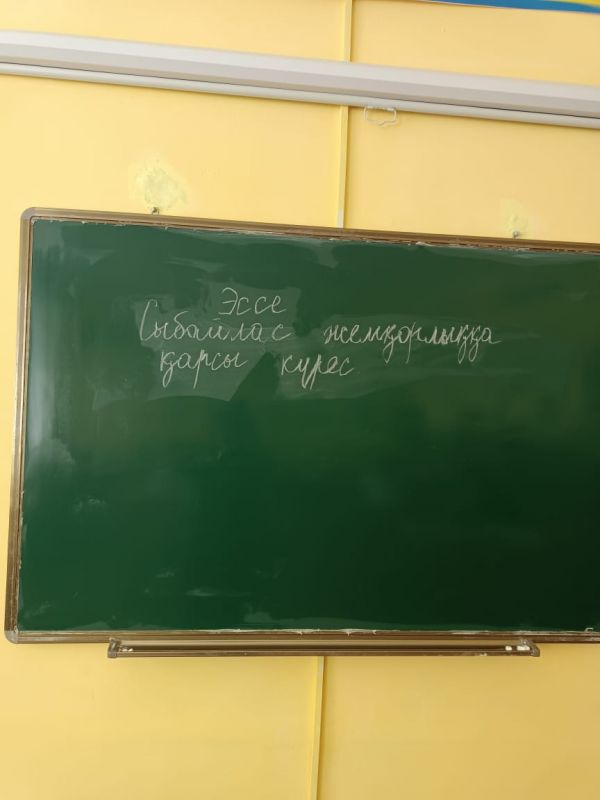 Эссе
Сыбайлас жемқорлыққа
қарсы күрес